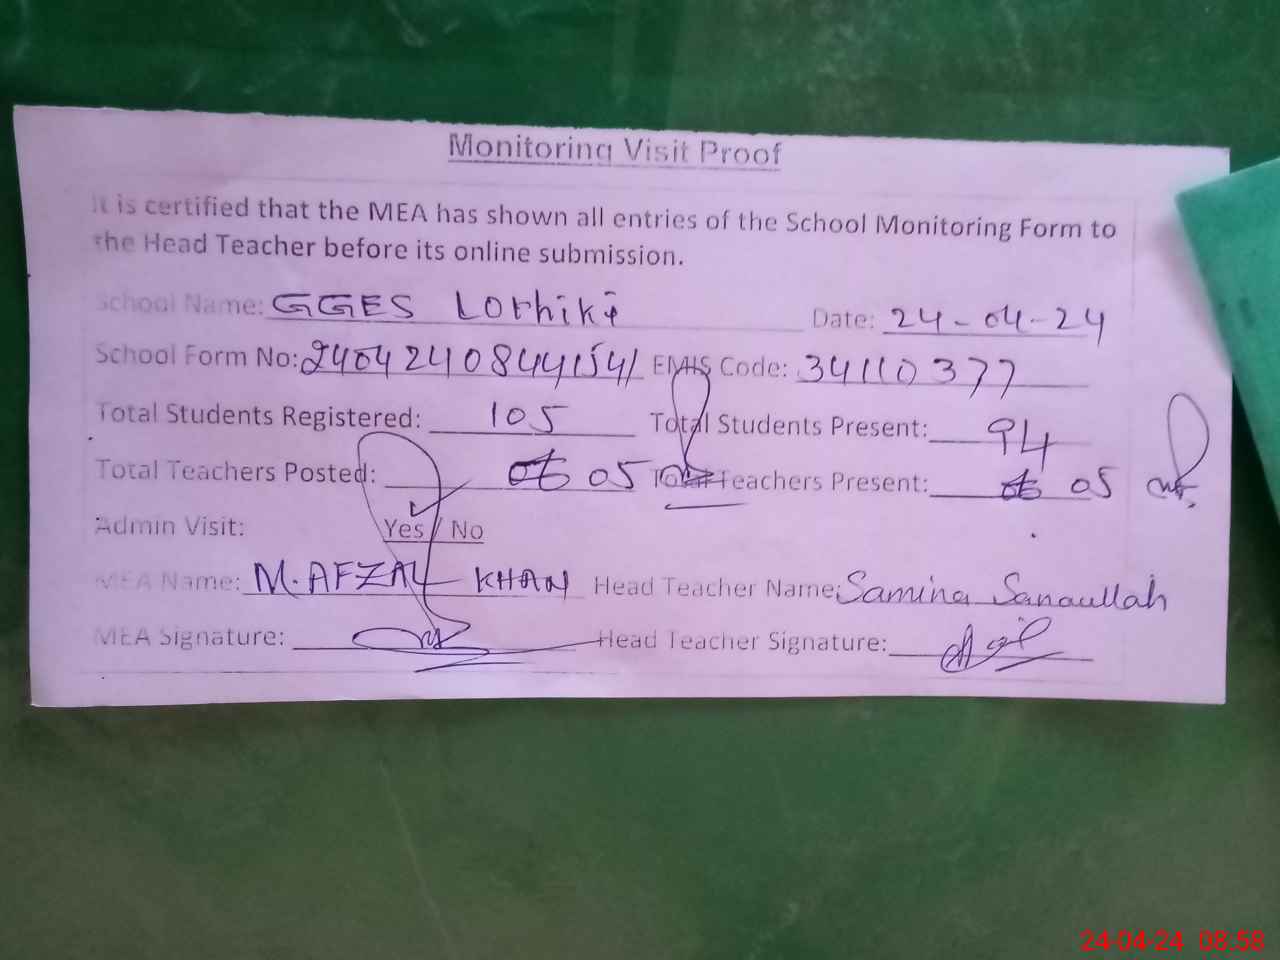 Monitoring Visit Proof
It is certified that the MEA has shown all entries of the School Monitoring Form to
the Head Teacher before its online submission.
School Name: GGES Lorhiki Date: 24-04-24
School Form No: 24042408441541 EMIS Code: 34110377
Total Students Registered: 105 Total Students Present: 94
Total Teachers Posted: 05 Total Teachers Present: 05
Admin Visit: Yes / No
MEA Name: M. AFZAL KHAN Head Teacher Name: Samina Sanaullah
MEA Signature: Head Teacher Signature:
24-04-24 08:58